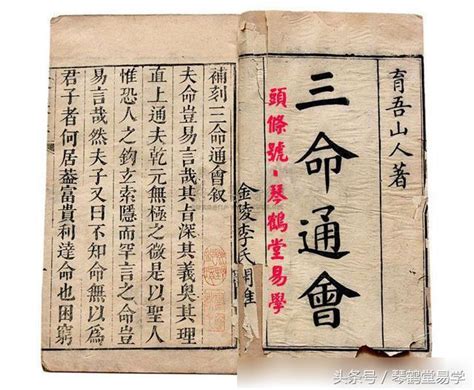 育吾山人著
三命通會
頭條號·琴鶴堂易學
金陵李氏
補刻三命通會叙
夫命豈易言哉其旨深其義奧其理
直上通夫乾元無極之微是以聖人
惟恐人之鈎玄索隱而罕言之命豈
易言哉然夫子又曰不知命無以爲
君子者何居葢富貴利達命也困窮
头条号／琴鹤堂易学